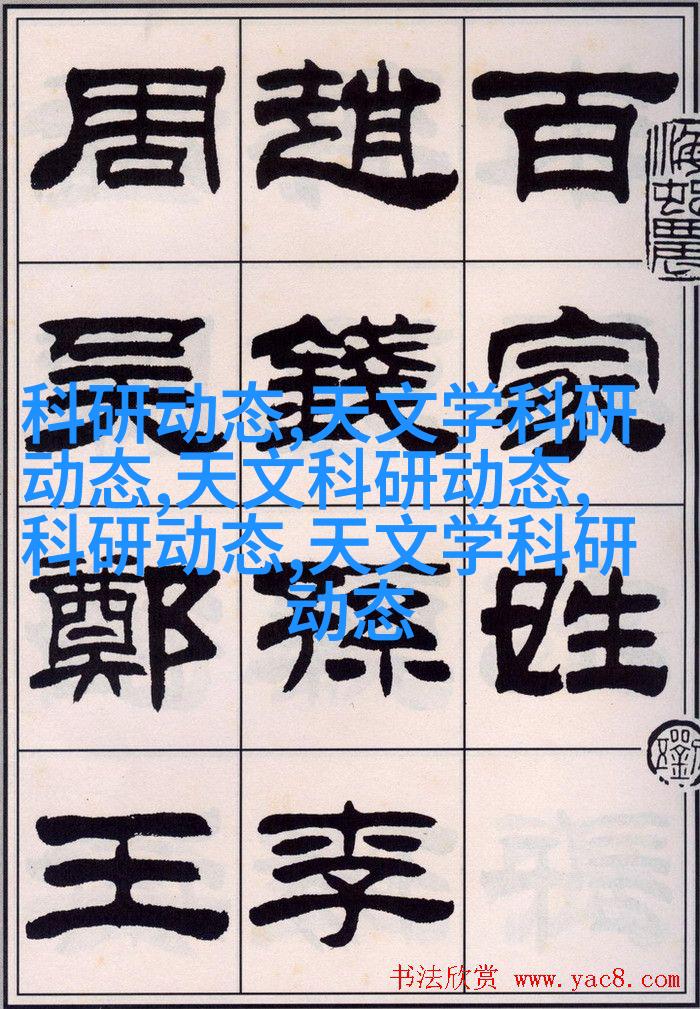 百家姓
趙錢孫李
周吳鄭王
科研动态,天文学科研
动态,天文科研动态,
科研动态,天文学科研
动态
书法欣赏 www.yac8.com